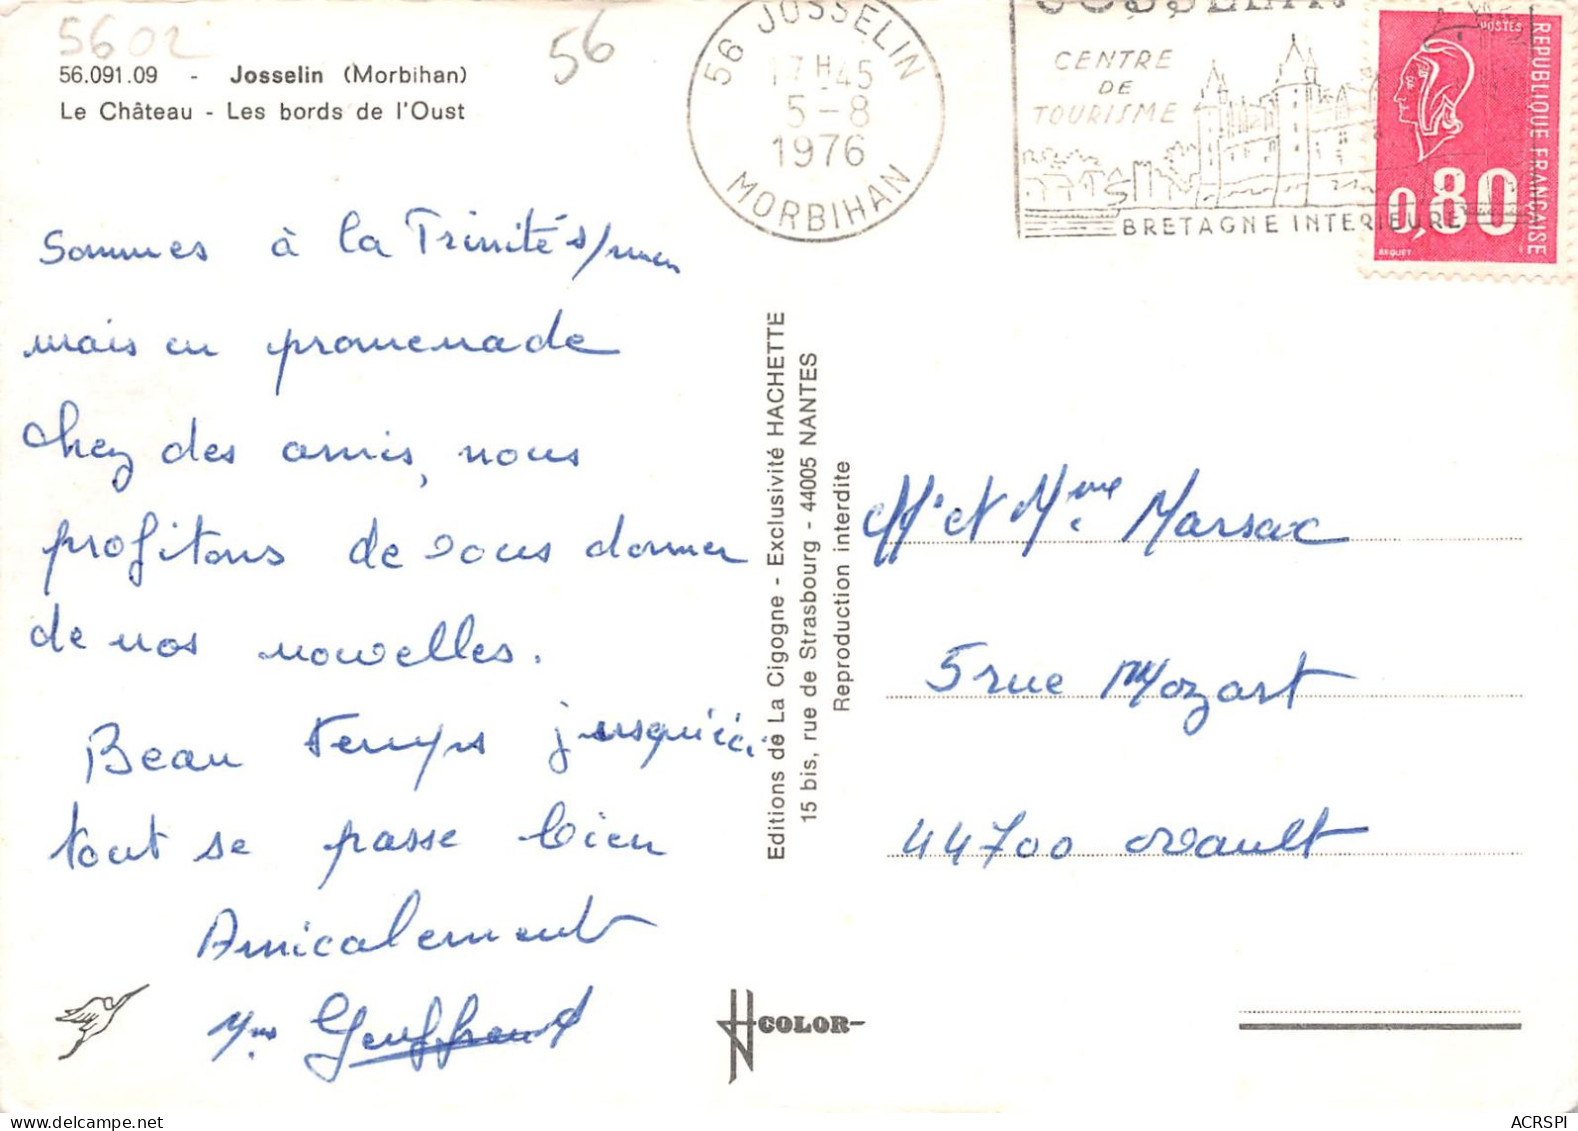 5602
56
56.091.09 - Josselin (Morbihan)
Le Château - Les bords de l'Oust
Sommes à la Trinité s/mer
mais en promenade
chez des amis, nous
profitons de vous donner
de nos nouvelles.
Beau temps jusqu'ici
tout se passe bien
Amicalement
Mme
56 JOSSELIN
17 H 45
5-8
1976
MORBIHAN
JOSSELIN
CENTRE
DE
TOURISME
BRETAGNE INTERIEURE
POSTES
REPUBLIQUE FRANÇAISE
0,80
BEQUET
Editions de La Cigogne - Exclusivité HACHETTE
15 bis, rue de Strasbourg - 44005 NANTES
Reproduction interdite
Mr et Mme Marsac
5 rue Mozart
44700 Orvault
COLOR
ACRSPI